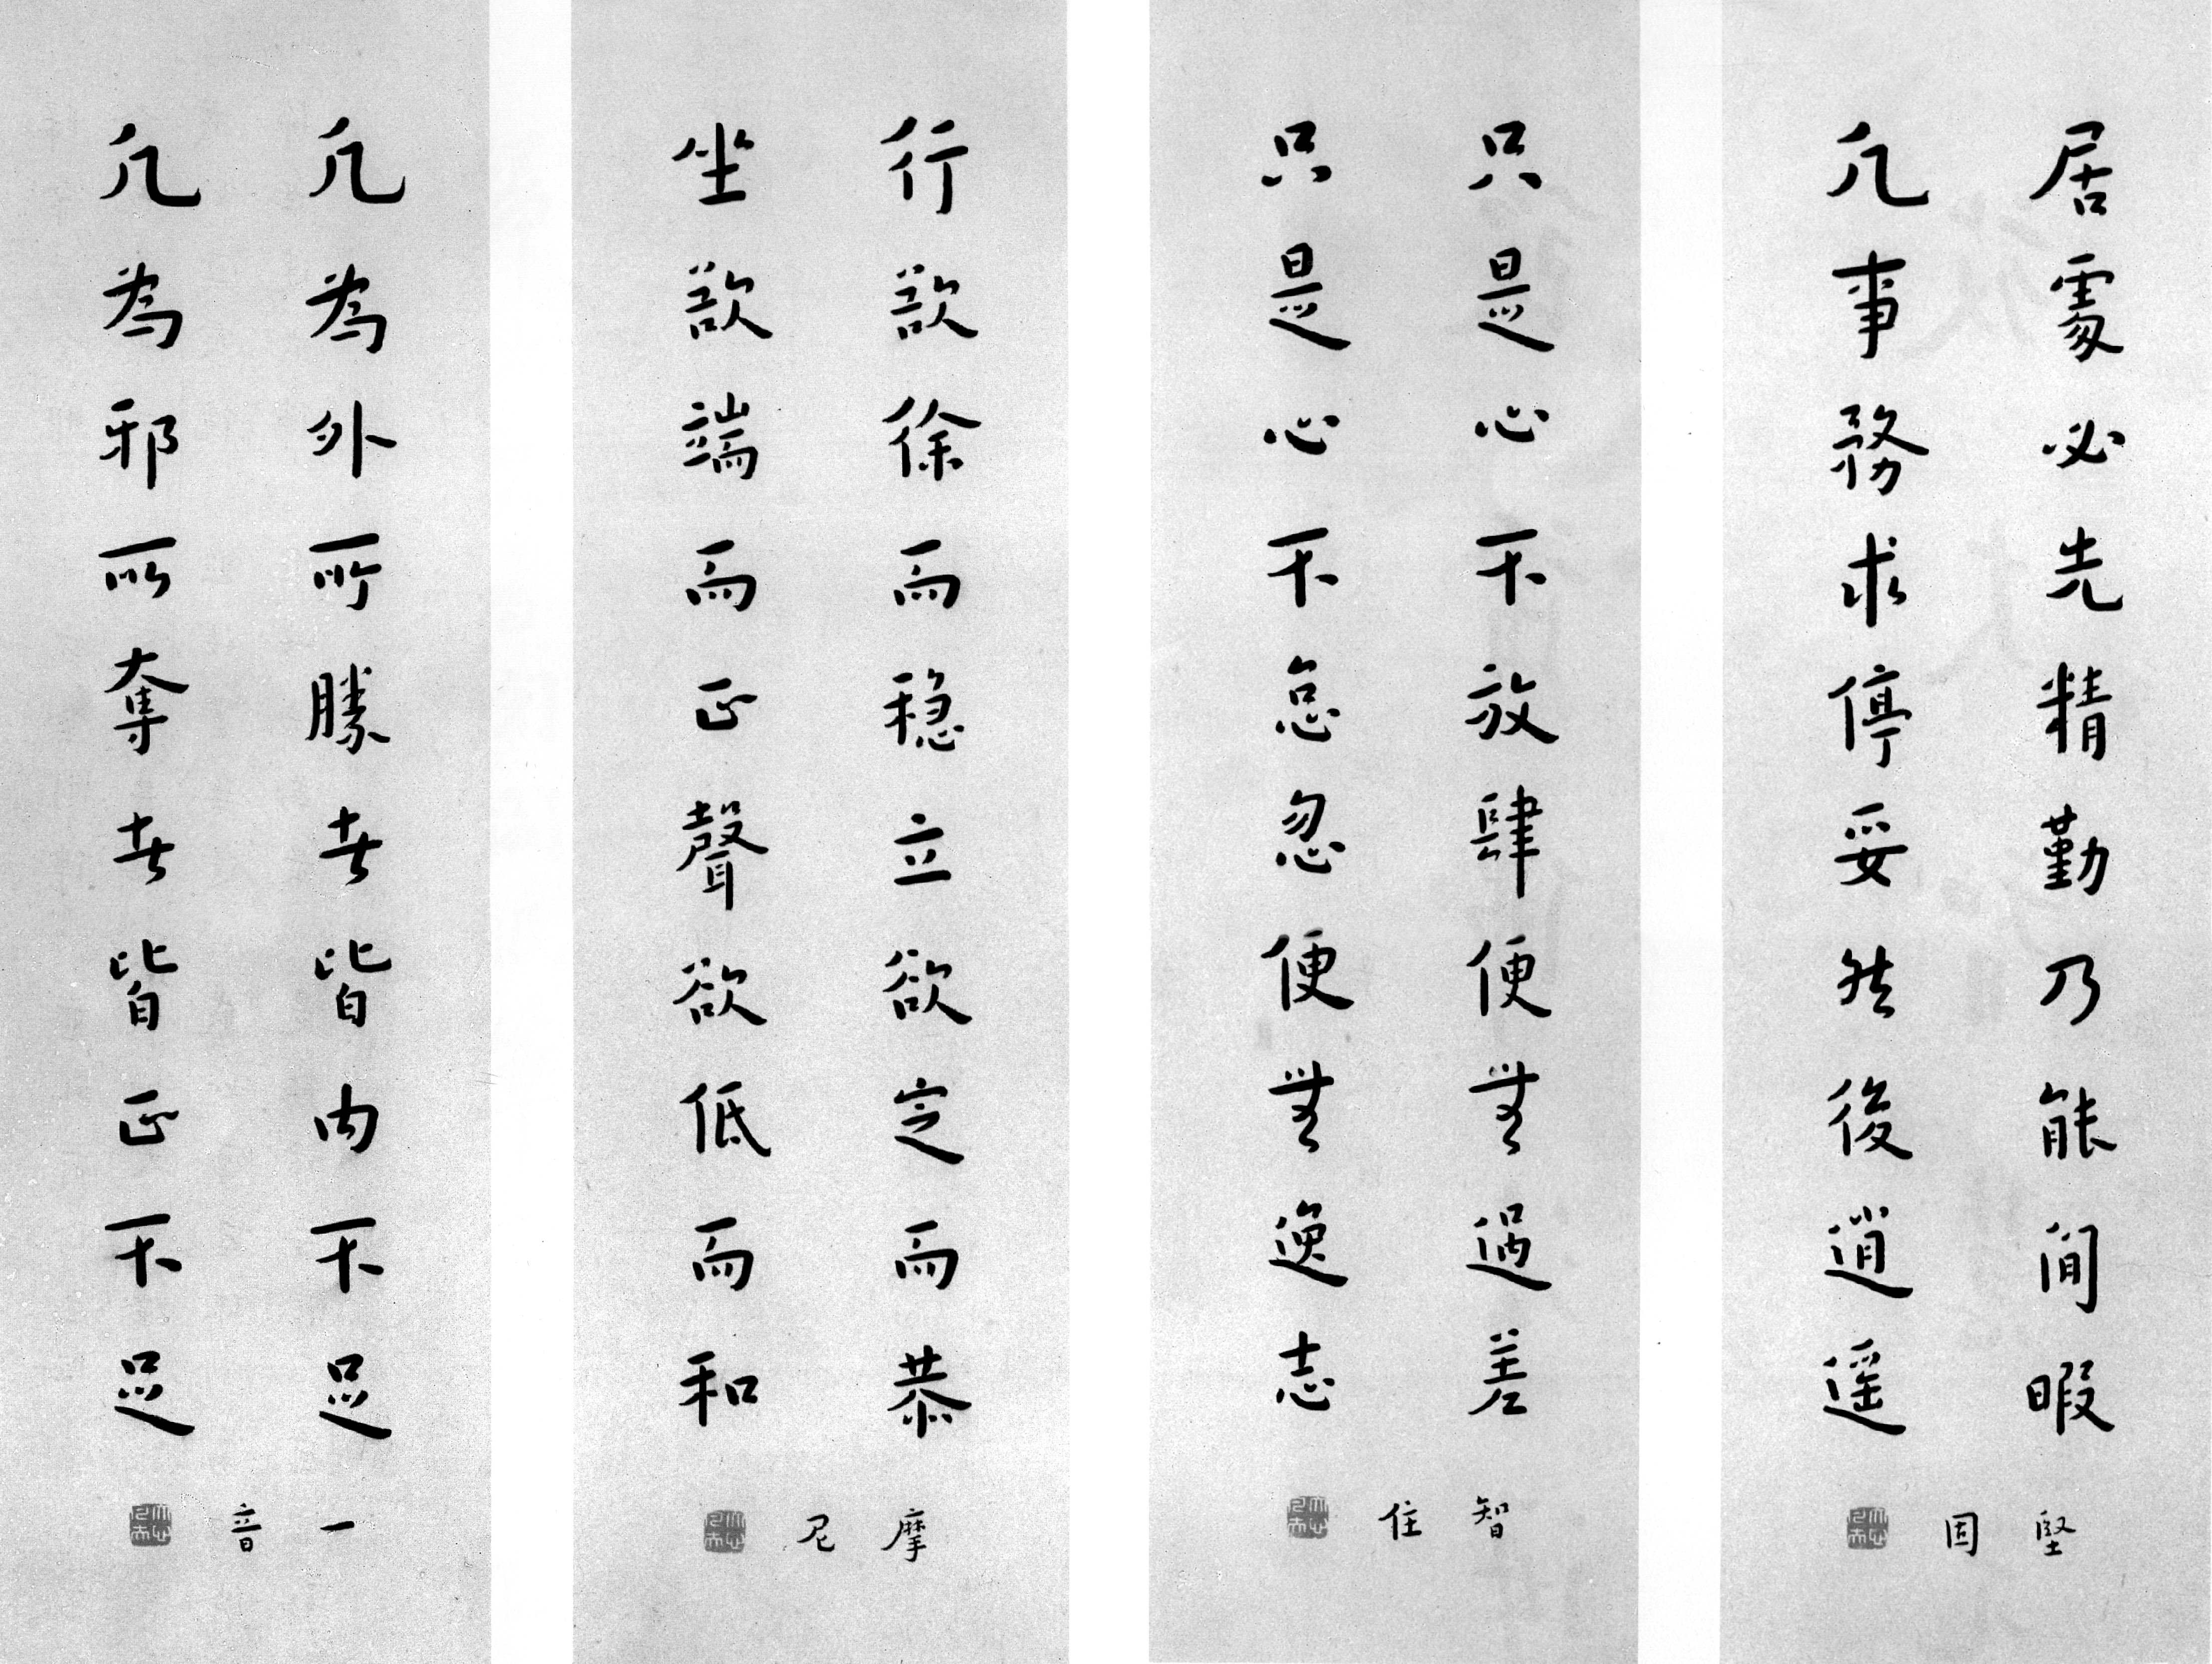 居處必先精勤乃能閒暇
凡事務求停妥然後逍遥
堅固
只是心不放肆便無過差
只是心不怠忽便無逸志
智住
行欲徐而穩立欲定而恭
坐欲端而正聲欲低而和
摩尼
凡為外所勝者皆内不足
凡為邪所奪者皆正不足
一音